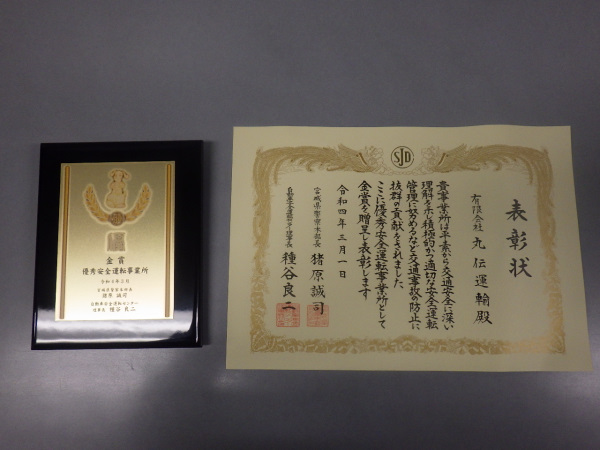 SJD
金賞
優秀安全運転事業所
令和4年3月
宮城県警察本部長
猪原 誠司
自動車安全運転センター
理事長 種谷 良二
SJD
表彰状
有限会社 丸伝運輸殿
貴事業所は平素から交通安全に深い
理解を示し積極的かつ適切な安全運転
管理に努めるなど交通事故の防止に
抜群の貢献をされました
ここに優秀安全運転事業所として
金賞を贈呈し表彰します
令和四年三月一日
宮城県警察本部長 猪原誠司
自動車安全運転センター理事長 種谷良二